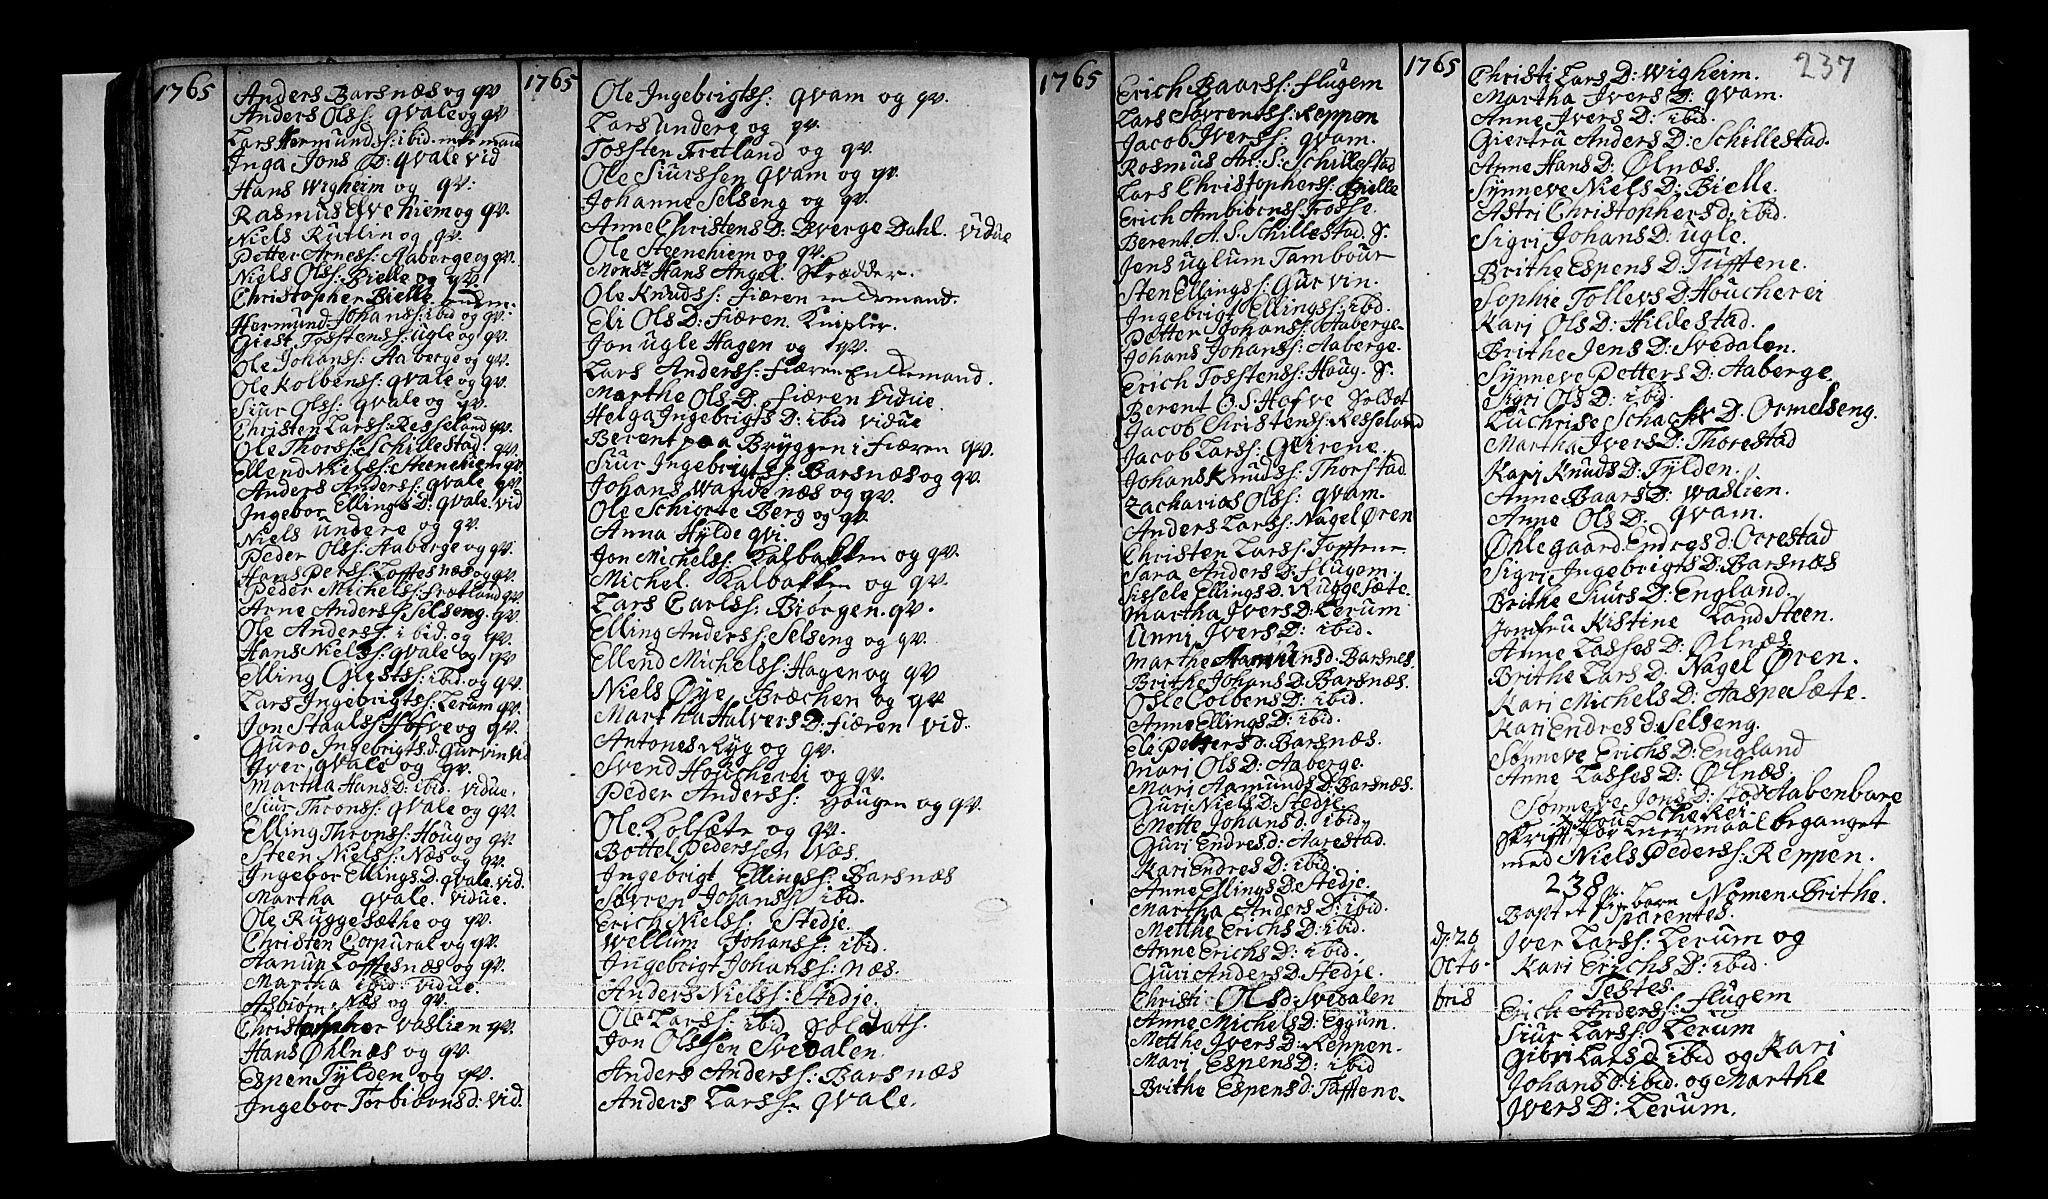 1765
Anders Barsnæs og qv
Anders Olss: qvale og qv
Lars Hermundss: ibid.
Inga Jons D: qvale vid
Hans Wigheim og qv:
Rasmus Elvehiem og qv.
Niels Rutlin og qv.
Petter Arness: Aaberge og qv.
Niels Olss: Bielle og qv.
Christopher Bielle
Hermund Johanss: ibid og qv.
Giest Tostenss: ugle og qv.
Ole Johanss: Aaberge og qv.
Ole Kolbenss: qvale og qv.
Siur Olss: qvale og qv.
Christen Larss: Kesseland qv.
Ole Thorss: Schillestad. qv.
Ellend Nielss: Steenehiem qv.
Anders Anderss: qvale. qv.
Ingebor Ellings D: qvale. vid
Niels undere og qv.
Peder Olss: Aaberge og qv.
Hans Perss: Loftesnæs og qv.
Peder Michelss: Frotland qv
Arne Anderss: Selseng. qv.
Ole Anderss: ibid. og qv.
Hans Nielss: qvale og qv
Elling Giestss: ibid. og qv.
Lars Ingebrigtss: Lerum qv.
Jon Staalss: Hofve og qv.
Guro Ingebrigts d: Gurvin vid
Iver qvale og qv.
Martha Hans D: ibid. vidue.
Siur Thronss: qvale og qv.
Elling Thronss: Houg og qv.
Steen Nielss: Næs og qv.
Ingebor Ellings D: qvale. vid.
Martha qvale. vidue.
Ole Ruggesæthe og qv.
Christen Corpural og qv.
Hanup Loftesnæs og qv.
Martha ibid: vidue.
Asbiørn Næs og qv.
Christopher Vaslien qv.
Hans Øhlnæs og qv.
Espen Tylden og qv.
Ingebor Torbiørns d: vid.
1765
Ole Ingebrigtss: qvam og qv.
Lars undere og qv.
Tossten Fretland og qv.
Ole Siurssen qvam og qv.
Johanne Selseng og qv.
Anne Christens D: Dverge Dahl. vidue
Ole Steenehiem og qv.
Monsr Hans Angel. Skrædder.
Ole Knudss: Fiæren indemand.
Eli Ols D: Fiæren. Knipler.
Jon ugle Hagen og qv.
Lars Anderss: Fiæren Enckemand.
Marthe Ols D: Fiæren Vidue.
Helga Ingebrigts D: ibid vidue
Berent paa Bryggen i Fiæren qv.
Siur Ingebrigtss: Barsnæs og qv.
Johans Wandenæs og qv.
Ole Schiorte Berg og qv.
Anna Hylde qvi.
Jon Michelss: Kalbakken og qv.
Michel. Kalbakken og qv.
Lars Carlss: Biorgen. qv.
Elling Anderss: Selseng og qv.
Ellend Michelss: Hagen og qv
Niels Øye Bræchen og qv
Martha Halvers D: Fiæren vid.
Antones Ryg og qv.
Svend Houcherei og qv.
Peder Anderss: Hougen og qv.
Ole Kolsæte og qv.
Bottel Pederssen Næs.
Ingebrigt Ellingss: Barsnæs
Søvren Johanss: ibid.
Erich Nielss: Stedje.
Wellum Johanss: ibid.
Ingebrigt Johanss: Næs.
Anders Nielss: Stedje.
Ole Larss: ibid Soldath.
Jon Olssen Svedalen.
Anders Anderss: Barsnæs
Anders Larss: qvale.
1765
Erich Baarss: Flugem
Lars Søvrenss: Reppen
Jacob Iverss: qvam.
Rosmus An: S: Schillestad
Lars Christopherss: Bielle
Erich Ambiørnss: Fosse.
Berent A. S. Schillestad. S.
Jens uglum Tambour
Sten Ellingss: Gurvin.
Ingebrigt Ellingss: ibid.
Petter Johanss: Aaberge
Johans Johanss: Aaberge.
Erich Tosstenss: Houg. S.
Berent O. S. Hofve Soldat
Jacob Christenss: Kesseland
Jacob Larss: Geirene.
Johans Knudss: Thorstad.
Zacharias Olss: qvam.
Anders Larss: Nagel Øren
Christen Larss: Tofftene
Sara Anders D: Flugem.
Sissele Ellings D: Ruggesæte.
Martha Ivers D: Lerum
Anni Ivers D: ibid.
Marthe Aamuns d: Barsnes.
Brithe Johans D: Barsnæs.
Osle Colbens D: ibid.
Anne Ellings D: ibid.
Eli Petters d: Barsnæs.
Mari Ols D: Aaberge.
Mari Aamunds D: Barsnæs.
Guri Niels D: Stedje.
Mette Johans d: ibid
Guri Endres d: Aarestad.
Kari Endres D: ibid.
Anne Ellings D: Stedje.
Martha Anders D: ibid.
Metthe Erichs D: ibid.
Anne Erichs D: ibid.
Guri Anders D: Stedje.
Christi Ols d: Svedalen
Anne Michels D: Eggum.
Metthe Ivers D: Reppen.
Mari Espens D: ibid
Brithe Espens d: Tufftene.
1765
237
Christi Lars D: Wigheim.
Martha Ivers D: qvam.
Anne Ivers D: ibid.
Giertru Anders D: Schillestad.
Anne Hans D: Ølnæs.
Synneve Niels D: Bielle.
Astri Christophers d: ibid.
Sigri Johans D: ugle.
Brithe Espens D: Tufftene.
Sophie Tollevs D: Houcherei
Kari Ols D: Hildestad.
Brithe Jens D: Svedalen.
Synneve Petters D: Aaberge.
Sigri Ols D: ibid.
Luchrise Schacht D. Ormelseng.
Martha Ivers D: Thorestad
Kari Knuds D: Tylden.
Anne Baars D: Waslien.
Anne Ols D: qvam.
Øhlegaard Endres d: Orrestad
Sigri Ingebrigts D: Barsnæs
Brithe Siurs D: England.
Jomfru Kistine Land Steen.
Anne Lasses D: Ølnæs
Brithe Lars D. Nagel Øren.
Kari Michels D: Aaspe Sæte.
Kari Endres d: Selseng.
Sønneve Erichs D: England
Anne Lasses D: Ølnæs.
Sønneve Jons D: stod Aabenbare
Skrifft for Leiermaal beganget
med Niels Pederss: Reppen.
238
Bapt et Pigebarn Nomen Brithe.
Parentes.
d: 26
Octo-
bris
Iver Larss: Lerum og
Kari Erichs D: ibid.
Testes.
Erich Anderss: Flugem
Siur Larss: Lerum
Giøri Lars d: ibid og Kari
Johans d: ibid. og Marthe
Ivers D: Lerum.